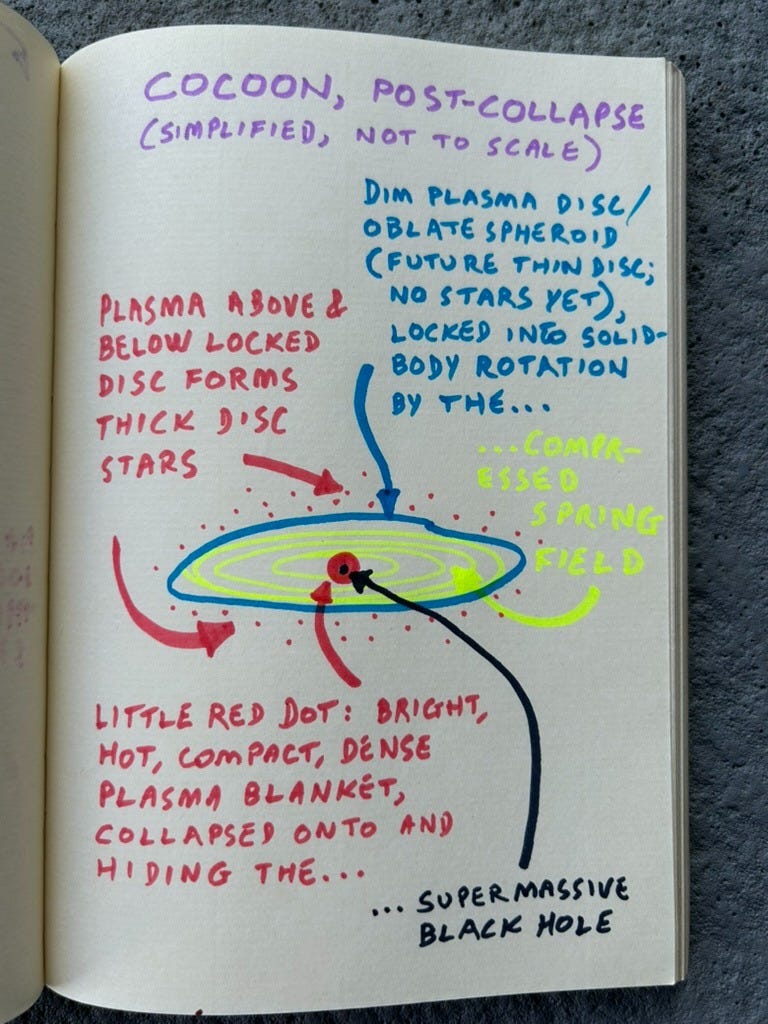 COCOON, POST-COLLAPSE
(SIMPLIFIED, NOT TO SCALE)
DIM PLASMA DISC/
OBLATE SPHEROID
(FUTURE THIN DISC;
NO STARS YET),
LOCKED INTO SOLID-
BODY ROTATION
BY THE...
PLASMA ABOVE &
BELOW LOCKED
DISC FORMS
THICK DISC
STARS
...COMPR-
ESSED
SPRING
FIELD
LITTLE RED DOT: BRIGHT,
HOT, COMPACT, DENSE
PLASMA BLANKET,
COLLAPSED ONTO AND
HIDING THE...
... SUPERMASSIVE
BLACK HOLE